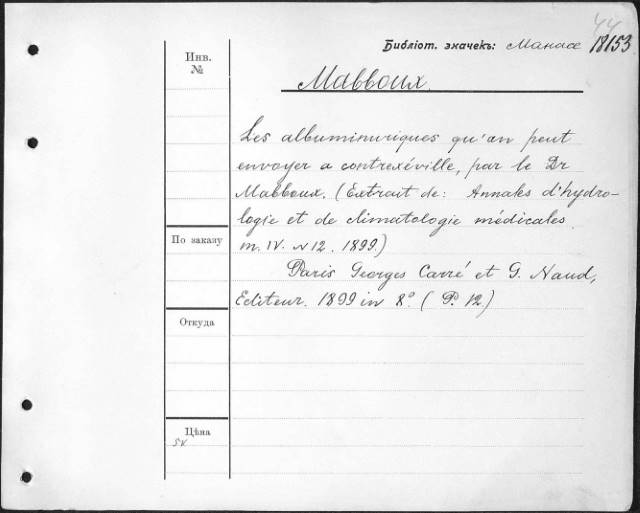 44
Библіот. значекъ: Манасе 18153
Инв.
№
Mabboux.
Les albuminuriques qu'an peut
envoyer a contrexéville, par le Dr
Mabboux. (Extrait de: Annales d'hydro-
logie et de climatologie médicales
m. IV. N 12. 1899.)
По заказу
Paris Georges Carré et G. Naud,
Editeur. 1899 in 8° (P. 12.)
Откуда
Цѣна